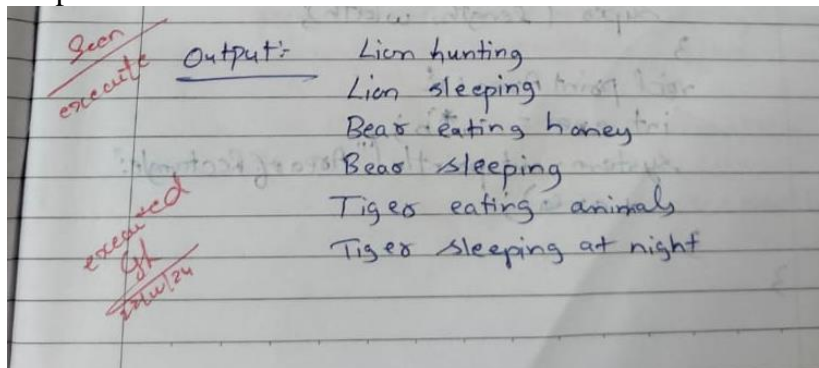 Seen
execute
Output:- Lion hunting
Lion sleeping
Bear eating honey
Bear sleeping
Tiger eating animals
Tiger sleeping at night
executed